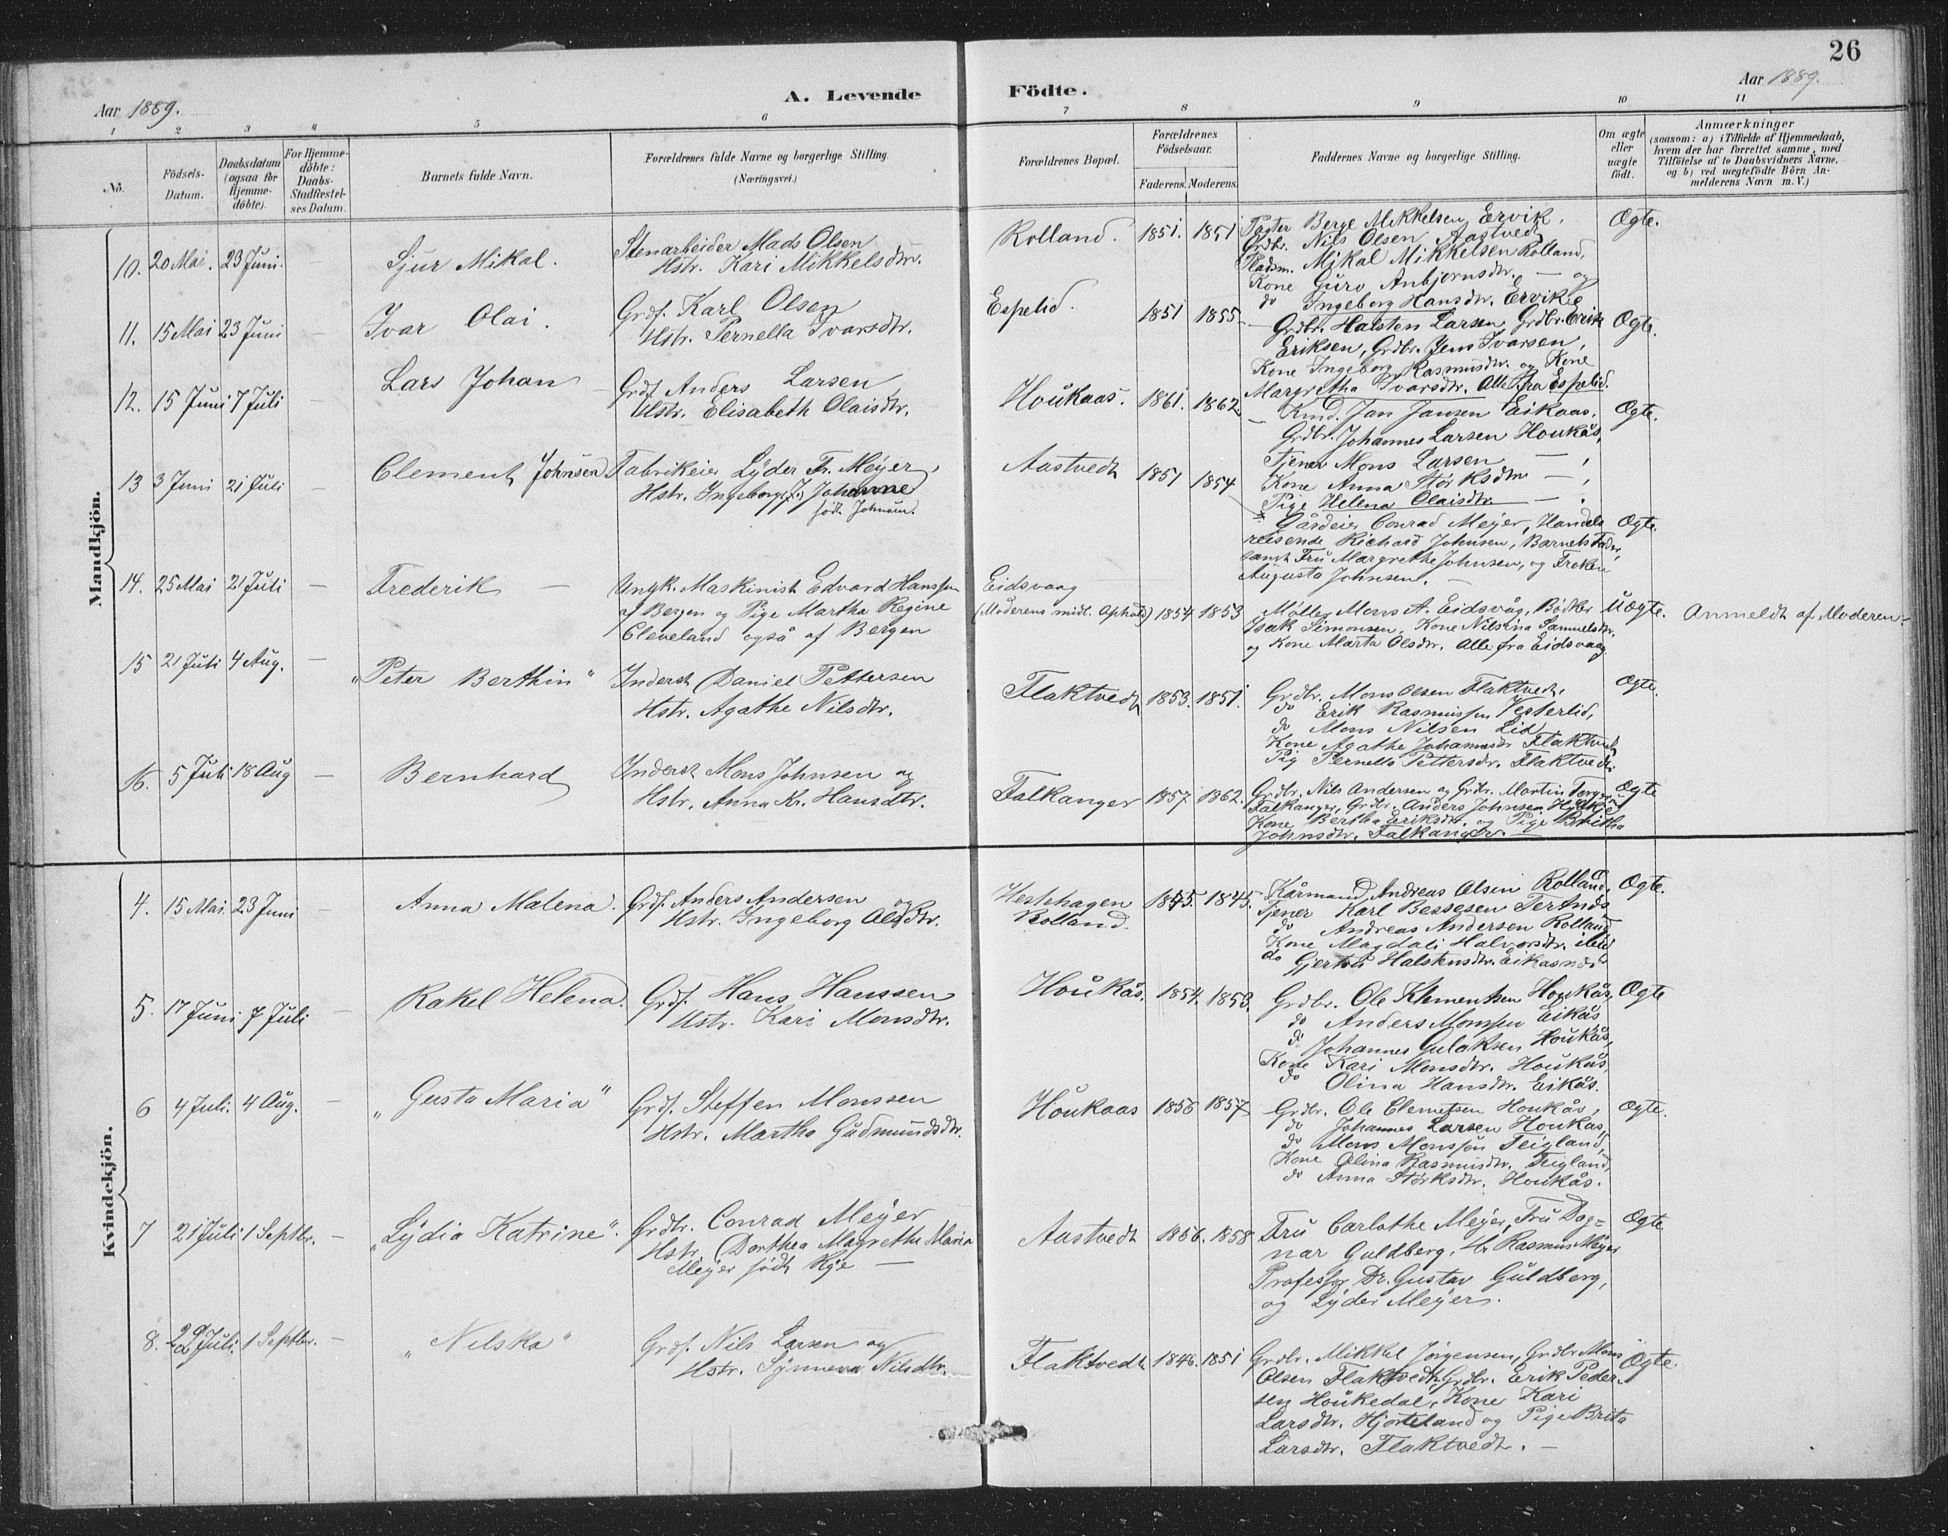 26
Aar 1889.
A. Levende
Födte.
Aar 1889.
1 2 3 4 5 6 7 8 9 10 11
No.
Födsels-
Datum.
Daabsdatum
(ogsaa for
Hjemme-
döbte).
For Hjemme-
döbte:
Daabs-
Stadfæstel-
ses Datum.
Barnets fulde Navn.
Forældrenes fulde Navne og borgerlige Stilling.
(Næringsvei.)
Forældrenes Bopæl.
Forældrenes
Födselsaar.
Faderens. Moderens.
Faddernes Navne og borgerlige Stilling.
Om ægte
eller
uægte
födt.
Anmærkninger
(saasom: a) i Tilfælde af Hjemmedaab,
hvem der har forrettet samme, med
Tilföielse af to Daabsvidners Navne,
og b) ved uægtefödte Börn An-
melderens Navn m. V.)
Mandkjön.
10. 20 Mai. 23 Juni. — Sjur Mikal.
Stenarbeider Mads Olsen
Hstr. Kari Mikkelsdtr.
Rolland. 1851. 1851
Pagter Berge Mikkelsen Ervik.
Grdbr. Nils Olsen Aastvedt
Pladsm. Mikal Mikkelsen Rolland,
Kone Guro Anbjornsdtr. — og
do Ingeborg Hansdtr. Ervik.
Ægte.
11. 15 Mai 23 Juni — Ivar Olai.
Grdf. Karl Olsen
Hstr. Pernella Ivarsdtr.
Espelid. 1851 1855
Grdbr. Halsten Larsen, Grdbr. Erik
Eriksen, Grdbr. Jens Ivarsen,
Kone Ingeborg Rasmusdtr. og Kone
Margretha Ivarsdtr. Alle fra Espelid.
Ægte.
12. 15 Juni 7 Juli — Lars Johan
Grdf. Anders Larsen
Hstr. Elisabeth Olaisdtr.
Houkaas. 1861. 1862
Kmd. Jan Jansen Eikaas.
Grdbr. Johannes Larsen Houkås,
Tjener Mons Larsen — ,
Kone Anna Störksdtr — ,
Pige Helena Olaisdtr. — .
Ægte.
13 3 Juni 21 Juli — Clement Johnsen
Fabrikeier Lyder Fr. Meyer,
Hstr. Ingeborg J. Johanne
födt Johnsen.
Aastvedt 1851 1854
Gårdeier Conrad Meyer, Handels
reisende Richard Johnsen, Barnets Fader,
samt Fru Margrethe Johnsen, og Frøken
Augusta Johnsen. —
Ægte.
14. 25 Mai 21 Juli — Frederik —
Ungk. Maskinist Edvard Hanssen
af Bergen og Pige Martha Regine
Cleveland også af Bergen
Eidsvaag
(Moderens midl. Ophold) 1854. 1853
Møller Mons A. Eidsvåg, Bødker
Isak Simonsen, Kone Nilsina Samuelsdtr.
og Kone Marta Olsdtr. Alle fra Eidsvaag
Uægte. Anmeldt af Moderen.
15 21 Juli 4 Aug. — "Peter Berthin"
Inderst Daniel Pettersen
Hstr. Agathe Nilsdtr.
Flaktvedt 1853. 1851.
Grdbr. Mons Olsen Flaktvedt,
do Erik Rasmussen Vesterlid,
do Mons Nilsen Lid
Kone Agathe Johannesdtr Flaktvedt
Pig Pernella Pettersdtr. Flaktvedt
Ægte.
16. 5 Juli 18 Aug — Bernhard
Inderst Mons Johnsen og
Hstr. Anna Kr. Hansdtr.
Falkanger 1857. 1862.
Grdbr. Nils Andersen og Grdbr. Martin
Falkanger, Grdbr. Anders Johnsen
Kone Bertha Eriksdtr. og Pige Britha
Johnsdtr. Falkanger. —
Ægte
Kvindekjön.
4. 15 Mai. 23 Juni — Anna Malena.
Grdf. Anders Andersen og
Hstr. Ingeborg Olsdtr.
Hesthagen
Rolland. 1845. 1845.
Kårmand Andreas Olsen Rolland,
Tjener Karl Bessesen Tertnes
do Andreas Andersen Rolland
Kone Magdali Halvorsdtr. ibid
do Gjertrud Halstensdtr. Eikasnæs
Ægte.
5. 17 Juni 7 Juli — Rakel Helena.
Grdf. Hans Hanssen
Hstr. Kari Monsdtr.
Houkås. 1854. 1853.
Grdbr. Ole Klementsen Houkås,
do Anders Monssen Eikås
do Johannes Gulaksen Houkås,
Kone Kari Monsdtr. Houkås,
do Olina Hansdtr. Eikås.
Ægte
6 4 Juli. 4 Aug. — "Gusta Maria"
Grdf. Steffen Monssen
Hstr. Martha Gudmundsdtr.
Houkaas 1856 1857
Grdbr. Ole Clemetsen Houkås,
do Johannes Larsen Houkås,
do Mons Monssen Teigland,
Kone Olina Rasmusdtr. Teigland,
do Anna Störksdtr. Houkås.
Ægte.
7 21 Juli 1 Septbr. — "Lydia Katrine".
Grdbr. Conrad Meyer
Hstr. Dorthea Magrethe Maria
Meyer födt Rye —
Aastvedt 1856. 1858
Fru Carlothe Meyer, Fru Dag=
nar Guldberg, Hr Rasmus Meyer
Professor Dr. Gustav Guldberg,
og Lyder Meyer.
Ægte
8. 22 Juli. 1 Septbr. — "Nilska"
Grdf. Nils Larsen og
Hstr. Synneva Nilsdtr.
Flaktvedt 1846. 1851
Grdbr. Mikkel Jørgensen, Grdbr Mons
Olsen Flaktvedt, Grdbr. Erik Peder-
sen Houkedal, Kone Kari
Larsdtr. Hjorteland og Pige Brita
Larsdtr. Flaktvedt. —
Ægte.